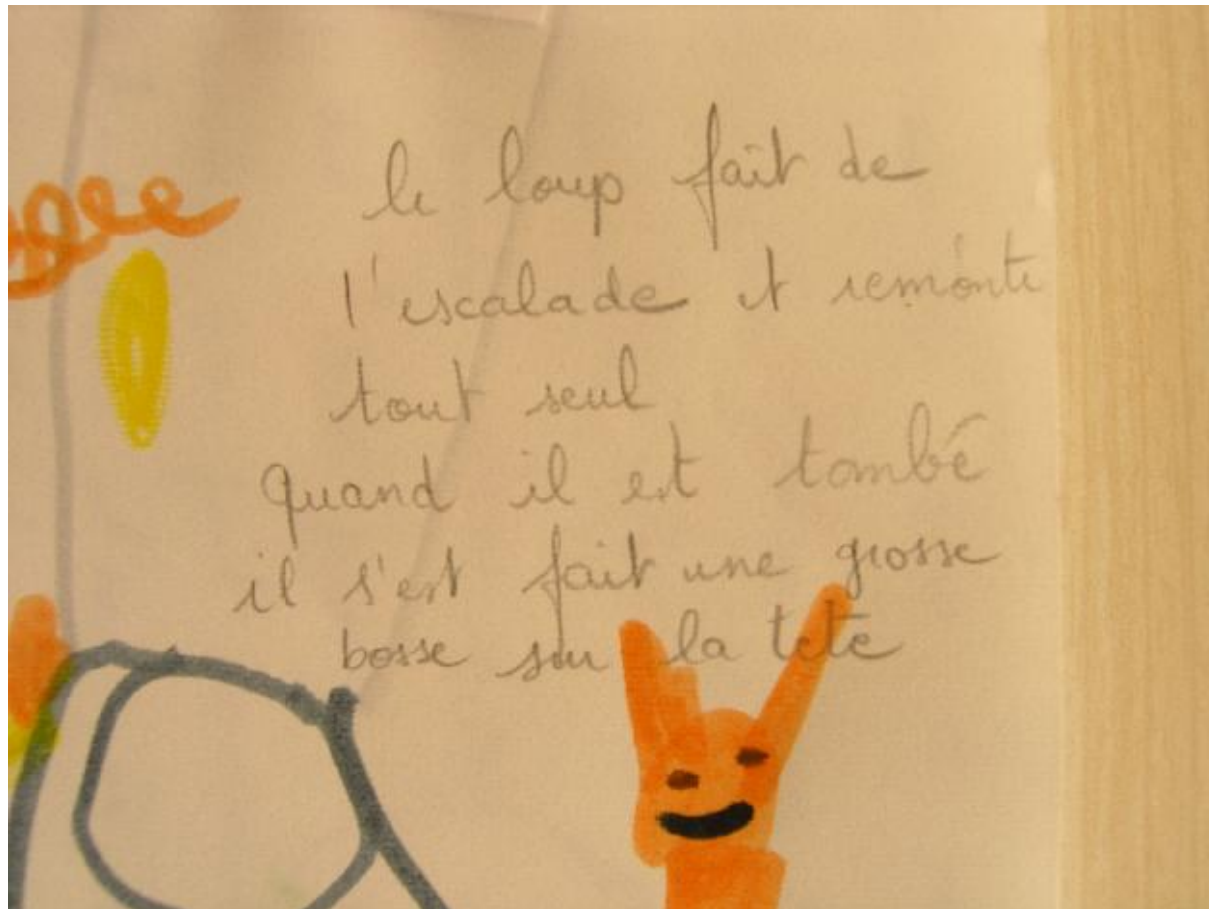 le loup fait de
l'escalade et remonte
tout seul
quand il est tombé
il s'est fait une grosse
bosse sur la tete